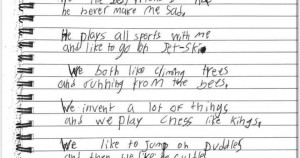 he never make me sad.
He plays all sports with me
and like to go on Jet-Ski.
We both like climing trees
and running from the bees.
We invent a lot of things
and we play chess like kings.
We like to jump on puddles
and then we like